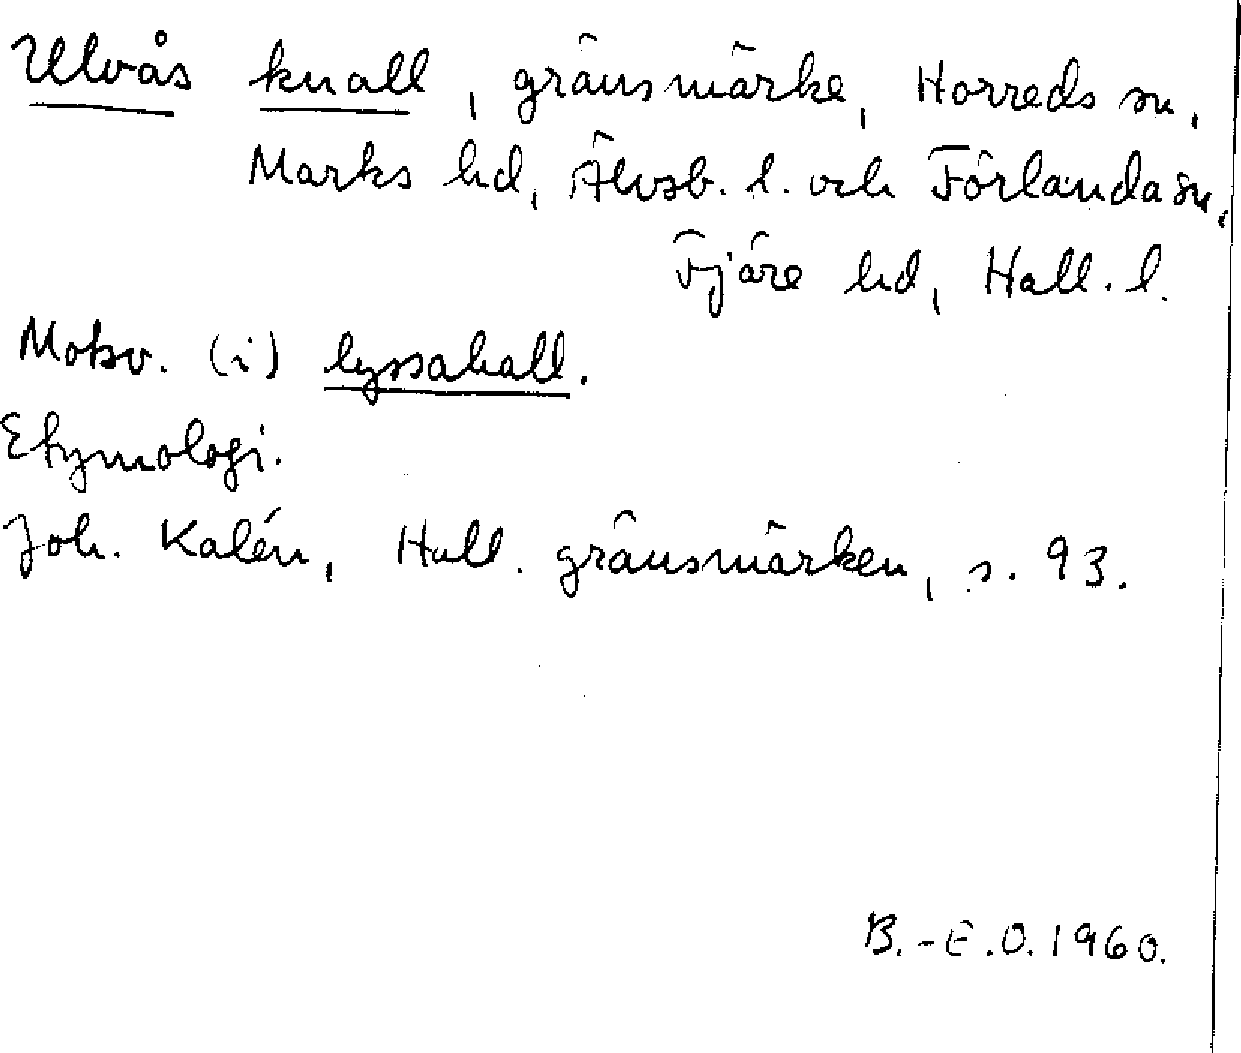 Ulvås knall, gränsmärke, Horreds sn,
Marks hd, Älvsb. l. och Förlanda sn,
Fjäre hd, Hall. l.
Motsv. (i) lyssahall.
Etymologi.
Joh. Kalén, Hall. gränsmärken, s. 93.
B.-E.O. 1960.